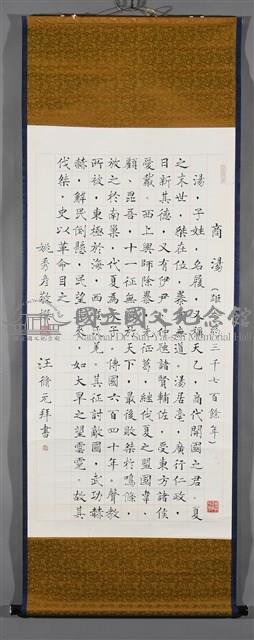 商湯
湯，子姓，名履，
天乙，商代開國之君。夏
之末世，桀在位，暴
無道。湯居亳，廣行仁政，
日新其德，又有伊尹
仲虺諸賢輔佐，受東方諸侯
愛戴。
興師除暴，
征葛，繼伐夏之盟國韋、
顧、昆吾，十一征無
天下，最後敗桀于鳴條，
放之於南巢，代夏為
子，傳國六百四十年，聲教
所被，東極於海，西
其征討敵國，武功赫
赫，解民倒懸，民望
如大旱之望雲霓。其
伐桀，史以革命目之。
姚秀彥敬
汪脩元拜書
國立國父紀念館
National Dr. Sun Yat-sen Memorial Hall